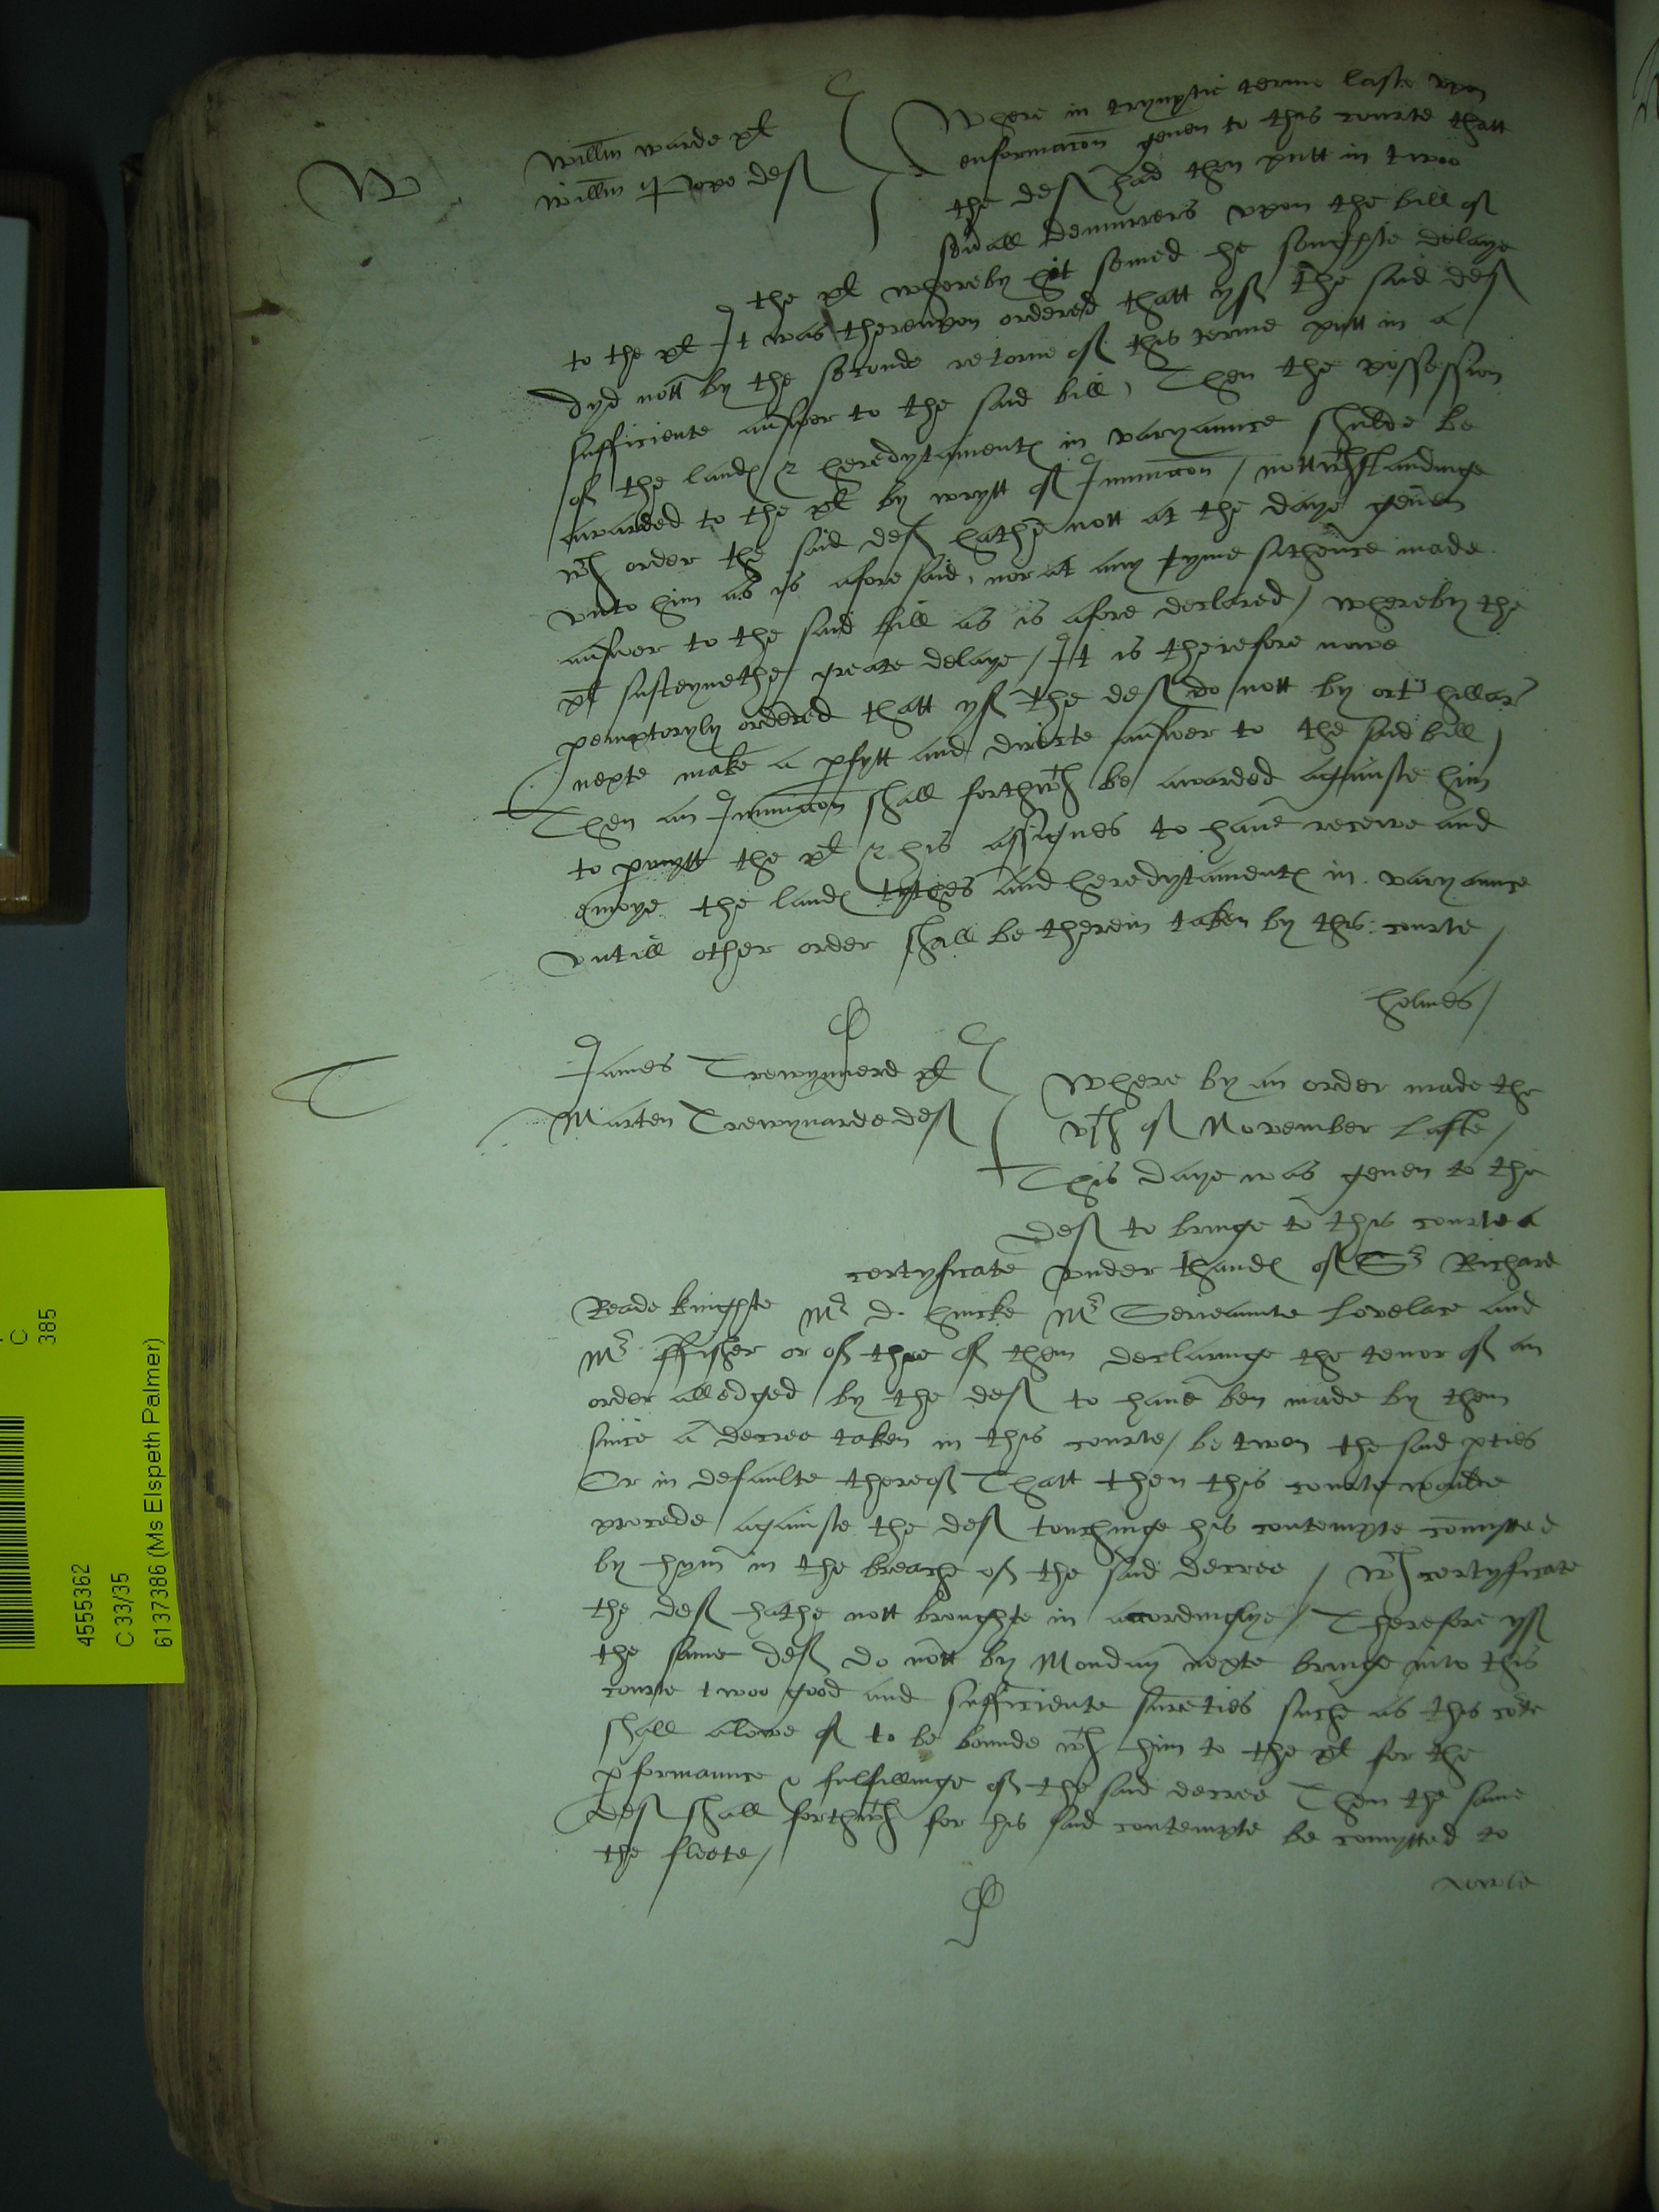 W
Willm warde pl
Willm Pope def
Where in trynytie terme laste vpon
enformacon geuen to this courte thatt
the def had then putt in twoo
seuall Demurrers vpon the bill of
the pl whereby hit semed he soughte delaye
to the pl It was therevpon ordered thatt yf the said def
dyd nott by the seconde retorne of this terme putt in a
sufficiente answer to the said bill, Then the possession
of the land & heredytament in varyaunce shulde be
awarded to the pl by wrytt of Iniunccon / nottwthstandinge
wch order the said def hathe nott at the daye geuen
vnto him as is afore said, nor at any tyme sithence made
answer to the said bill as is afore declared / whereby the
pl susteynethe greate delaye / It is therefore nowe
pemptoryly ordered thatt yf the def do nott by oct hillar
nexte make a pfytt and directe answer to the said bill /
Then an Iniunccon shall forthwth be awarded againste him
to pmytt the pl & his assignes to haue receive and
enioye the land tythes and heredytament in varyaunce
vntill other order shall be therein taken by this courte /
holmes /
T
James Trewynnerd pl
Marten Trewynarde def
Where by an order made the
vth of November laste /
This daye was geuen to the
def to bringe to this courte a
certyficate vnder thand of Sr Richard
Reade knighte Mr D. huicke Mr Serieaunte Lovelace and
Mr ffisher or of thre of them declaringe the tenor of an
order alledged by the def to haue ben made by them
since a decree taken in this courte / betwen the said pties
Or in defaulte thereof Thatt then this courte woulde
procede againste the def touchinge his contempte comytted
by hym in the breache of the said decree / wch certyficate
the def hathe nott broughte in accordinglye / Therefore yf
the same def do nott by Monday nexte bringe into this
courte twoo good and sufficiente sureties suche as this cote
shall alowe of to be bounde wth him to the pl for the
pformaunce & fulfillinge of the said decree Then the same
def shall forthwth for his said contempte be comytted to
the fleete /
powle
C
385
4555362
C 33/35
6137386 (Ms Elspeth Palmer)